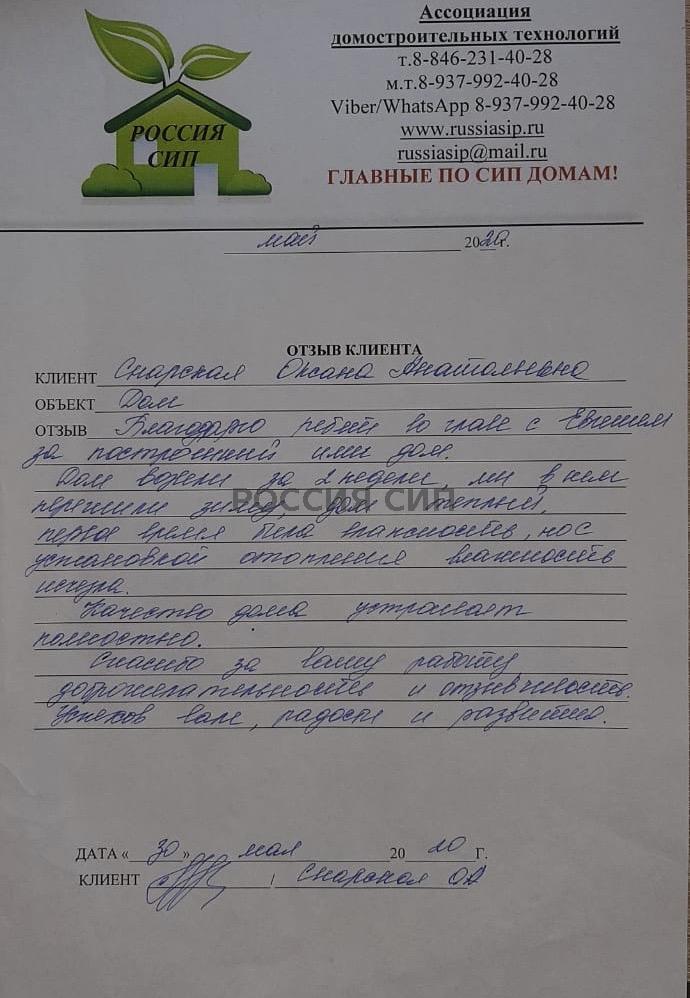 Ассоциация
домостроительных технологий
т.8-846-231-40-28
м.т.8-937-992-40-28
Viber/WhatsApp 8-937-992-40-28
www.russiasip.ru
russiasip@mail.ru
ГЛАВНЫЕ ПО СИП ДОМАМ!
РОССИЯ
СИП
май 2020 г.
ОТЗЫВ КЛИЕНТА
КЛИЕНТ Снарская Оксана Анатольевна
ОБЪЕКТ Дом
ОТЗЫВ Благодарю ребят во главе с Евгением
за построенный ими дом.
Дом возвели за 2 недели, мы в нем
пережили зиму, дом теплый,
РОССИЯ СИП
первое время была влажность, но с
установкой отопления влажность
исчезла.
Качество дома устраивает
полностью.
Спасибо за вашу работу,
доброжелательность и отзывчивость.
Успехов вам, радости и развития.
ДАТА «30» мая 2020 г.
КЛИЕНТ / Снарская ОА